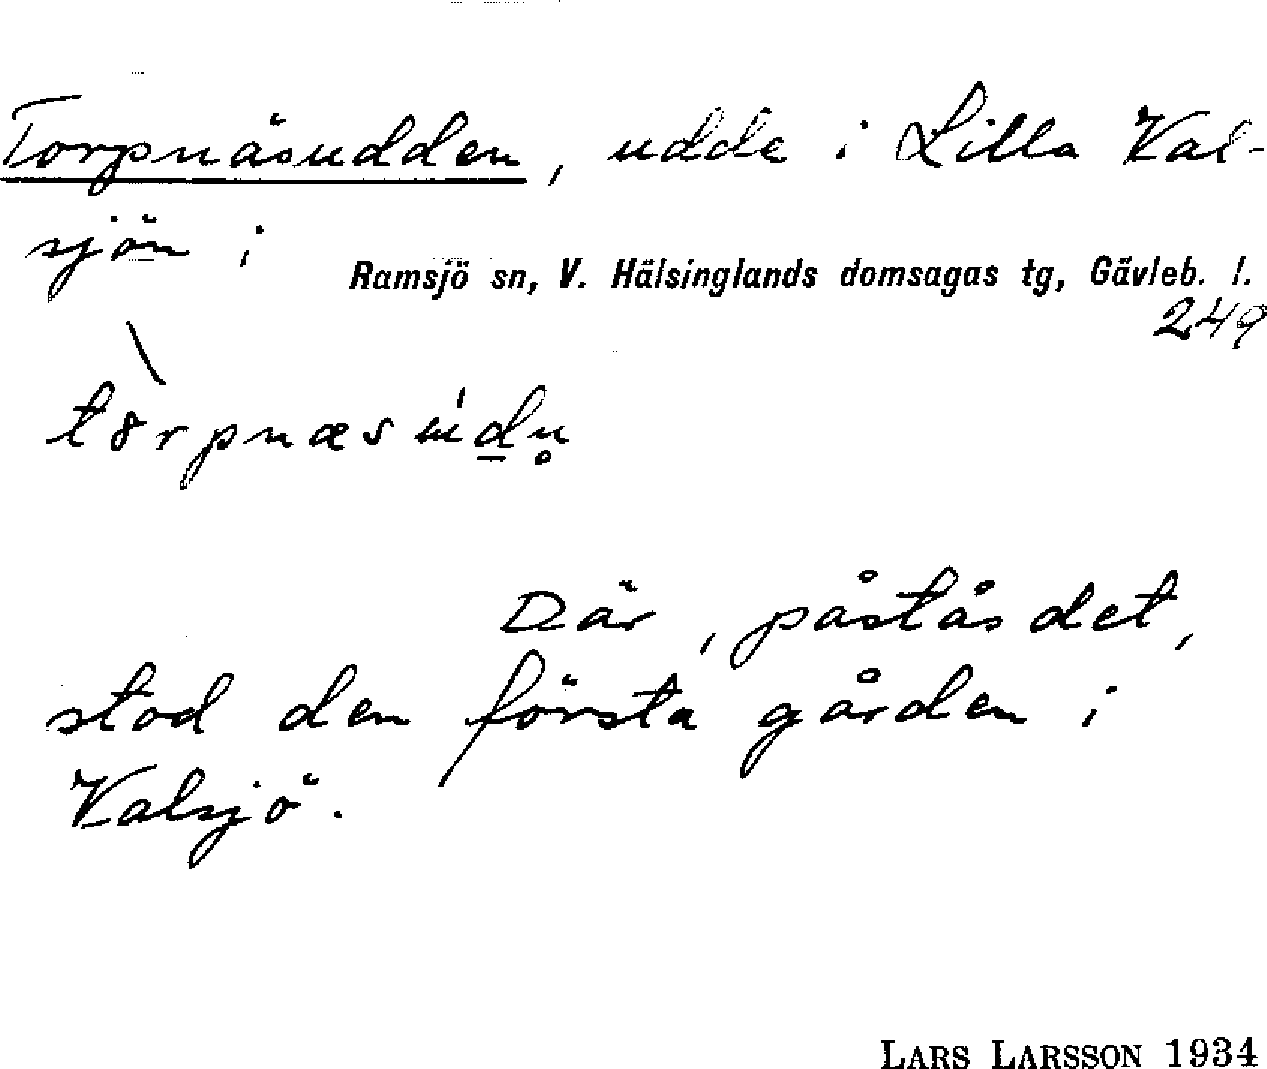 Torpnäsudden, udde i Lilla Val-
sjön i
Ramsjö sn, V. Hälsinglands domsagas tg, Gävleb. l.
249
Där, påstås det,
stod den första gården i
Valsjö.
LARS LARSSON 1934